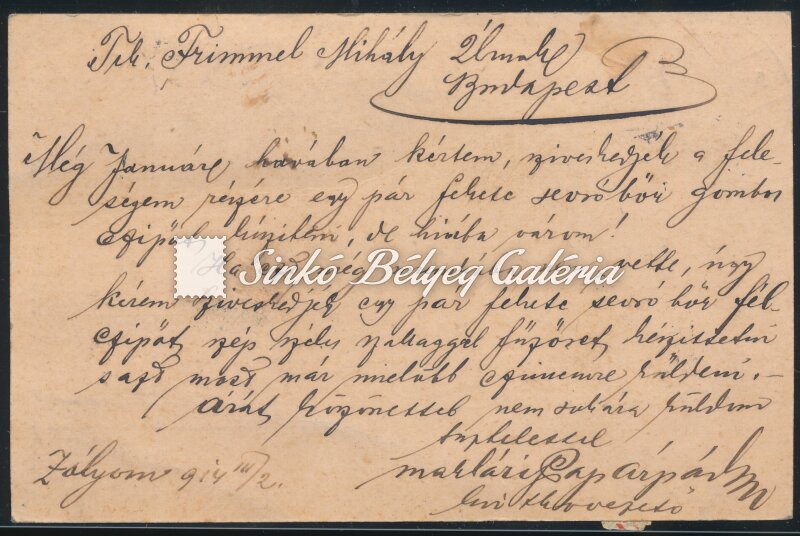 Tek. Frimmel Mihály Úrnak
Budapest
Még Január havában kértem, sziveskedjek a fele-
ségem részére egy pár fekete sevró bőr gombos
czipőt készíteni, de hiába várom!
Sinkó Bélyeg Galéria
Ha vette, úgy
kérem sziveskedjék egy pár fekete sevró bőr fél-
czipőt szép széles szallaggal fűzőset készíttetni
s azt most már mielőbb czimemre küldeni. —
Árát köszönettel nem sokára küldöm
tisztelettel
maklári Pap Árpád
Zólyom 914 III/2.